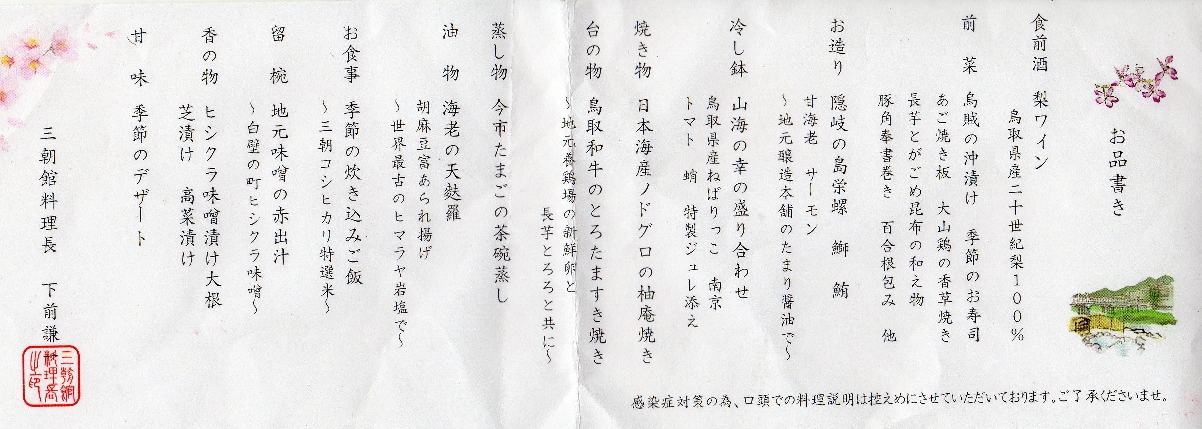 お品書き
食前酒 梨ワイン
鳥取県産二十世紀梨100%
前菜 烏賊の沖漬け 季節のお寿司
あご焼き板 大山鶏の香草焼き
長芋とがごめ昆布の和え物
豚角奉書巻き 百合根包み 他
お造り 隠岐の島栄螺 鰤 鮪
甘海老 サーモン
～地元醸造本舗のたまり醤油で～
冷し鉢 山海の幸の盛り合わせ
鳥取県産ねばりっこ 南京
トマト 蛸 特製ジュレ添え
焼き物 日本海産ノドグロの柚庵焼き
台の物 鳥取和牛のとろたますき焼き
～地元養鶏場の新鮮卵と
長芋とろろと共に～
蒸し物 今市たまごの茶碗蒸し
油物 海老の天麩羅
胡麻豆富あられ揚げ
～世界最古のヒマラヤ岩塩で～
お食事 季節の炊き込みご飯
～三朝コシヒカリ特選米～
留椀 地元味噌の赤出汁
～白壁の町ヒシクラ味噌～
香の物 ヒシクラ味噌漬け大根
芝漬け 高菜漬け
甘味 季節のデザート
三朝館料理長 下前謙
三朝館
料理長
之印
感染症対策の為、口頭での料理説明は控えめにさせていただいております。ご了承くださいませ。